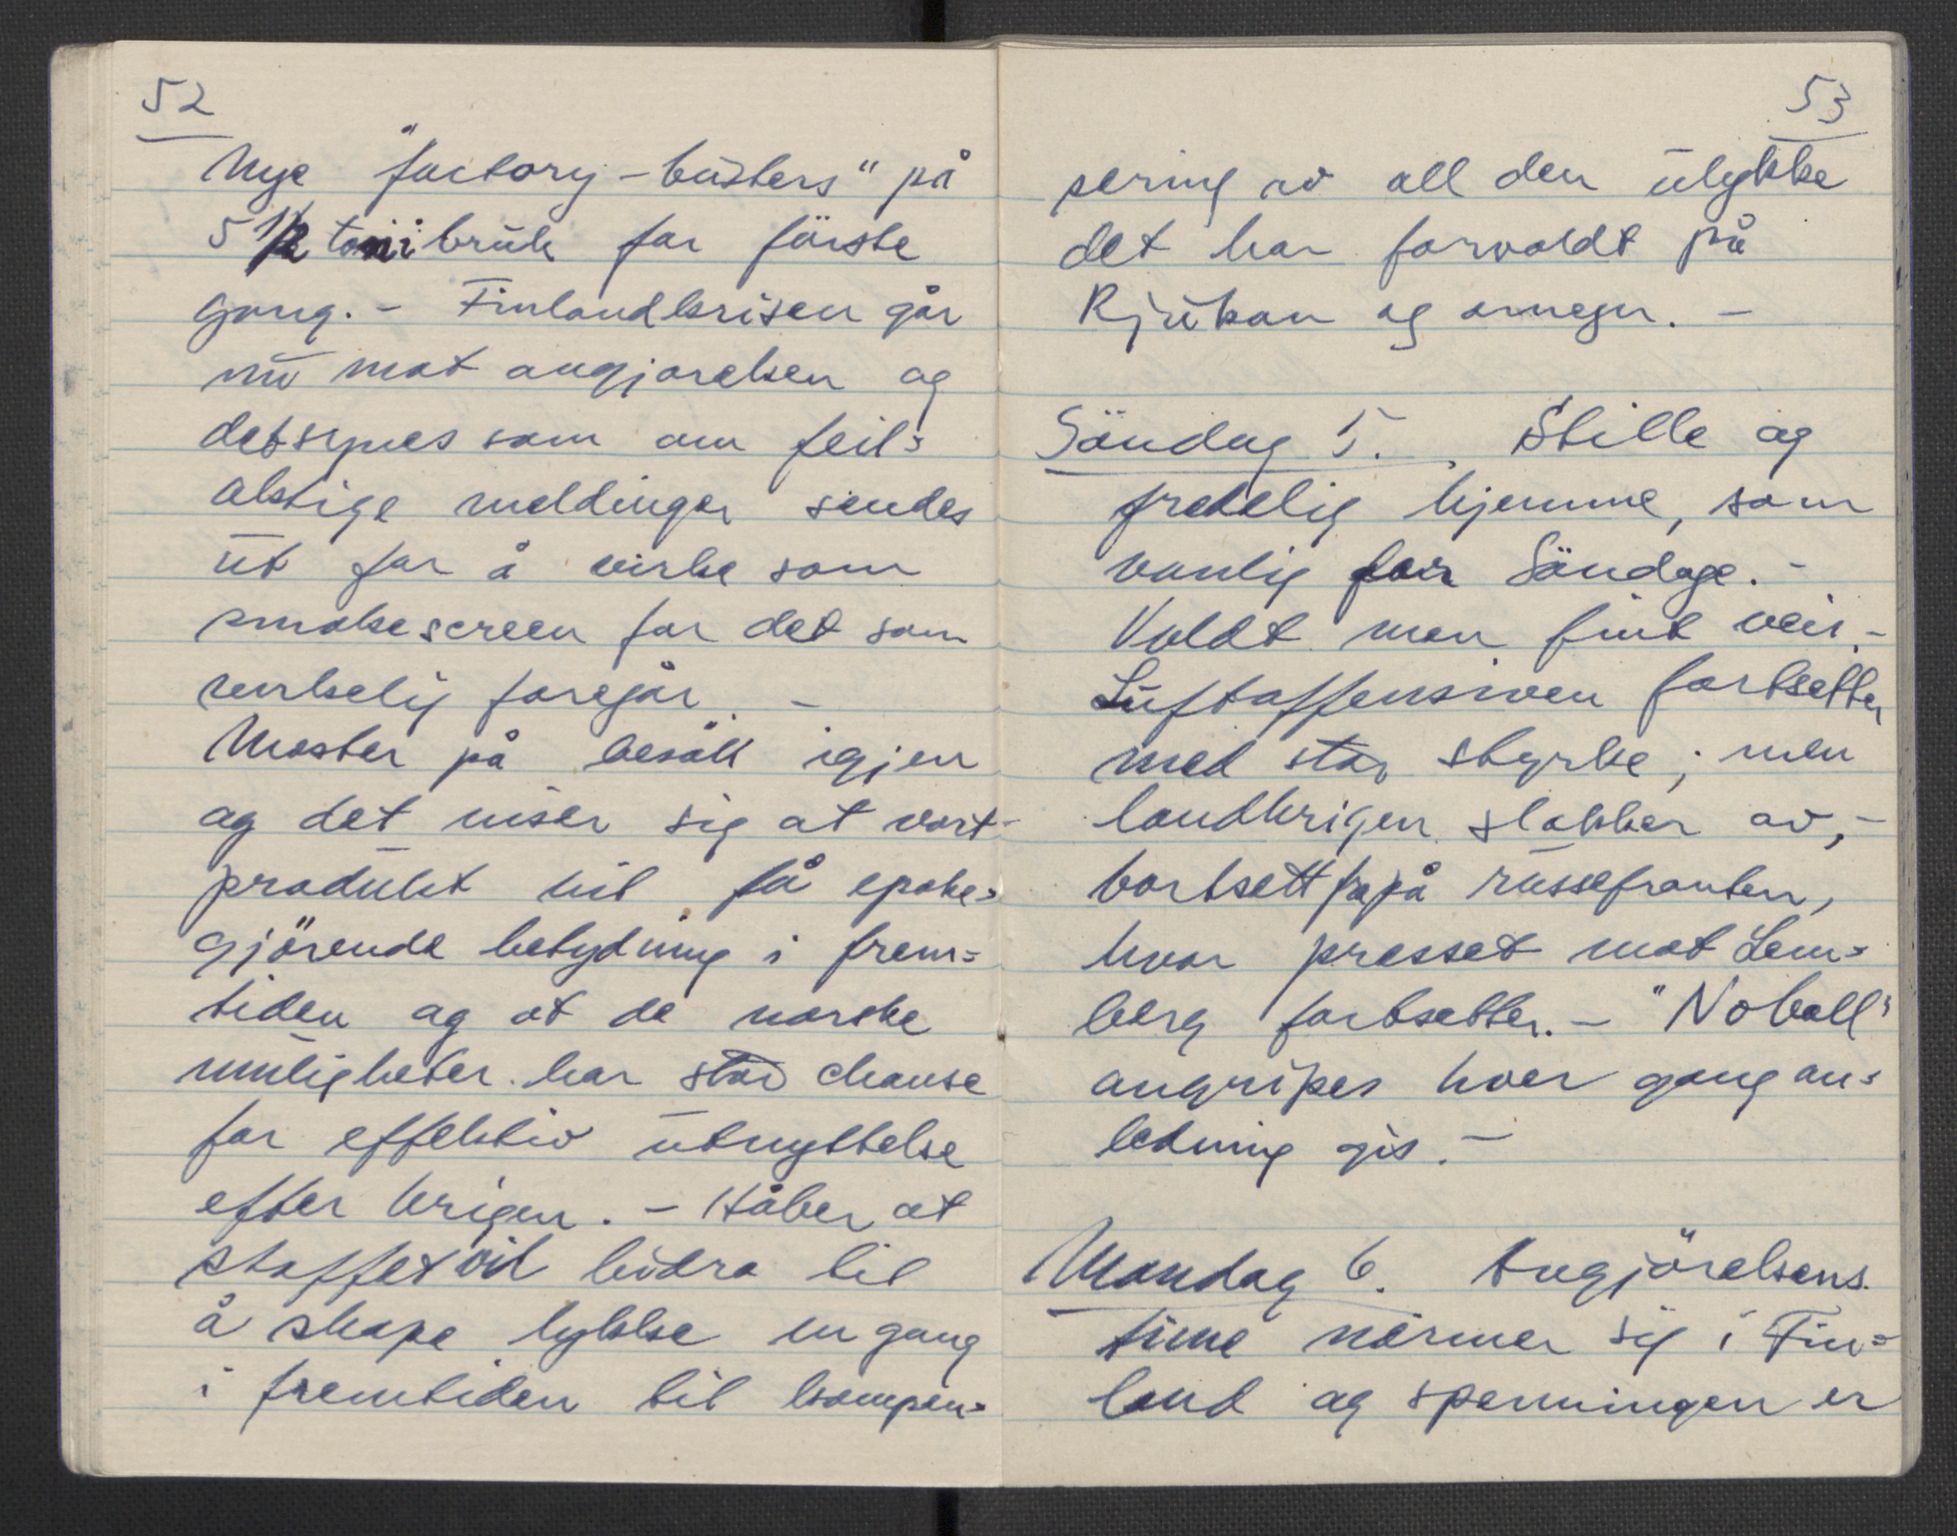 52
Nye "factory-busters" på
5 1/2 ton i bruk for förste
gang. - Finlandkrisen går
nu mot avgjorelsen og
det synes som om feil=
aktige meldinger sendes
ut for å virke som
smokescreen for det som
virkelig foregår. -
Moster på besök igjen
og det viser sig at vort
produkt vil få epoke=
gjörende betydning i frem=
tiden og at de norske
muligheter har stor chanse
for effektiv utnyttelse
efter krigen. - Håber at
stoffet vil bidra til
å skape lykke en gang
i fremtiden til kompen=
53
sering av all den ulykke
det har forvoldt på
Rjukan og omegn. -
Söndag 5. Stille og
fredelig hjemme, som
vanlig for Söndage. -
Koldt men fint veir. -
Luftoffensiven fortsetter
med stor styrke; men
landkrigen slakker av, -
bortsett på russefronten,
hvor presset mot Lem=
berg fortsetter. - "Noball"
angripes hver gang an=
ledning gis. -
Mandag 6. Avgjörelsens
time nærmer sig i Fin=
land og spenningen er